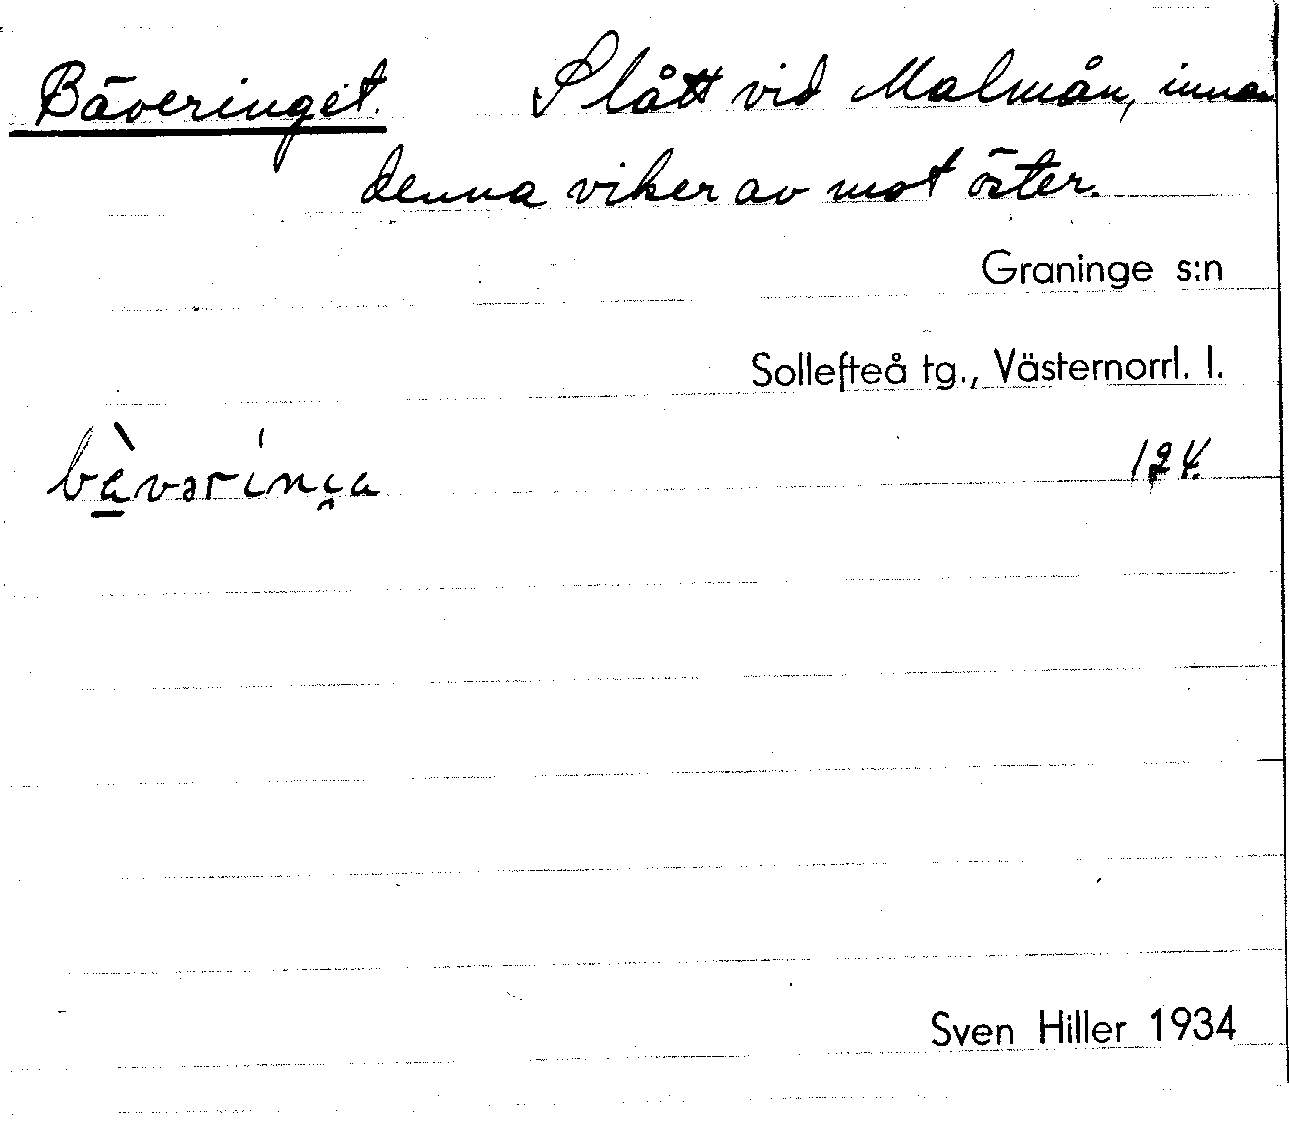 Bäveringet. Slått vid Malmån, innan
denna viker av mot öster.
Graninge s:n
Sollefteå tg., Västernorrl. l.
124.
Sven Hiller 1934